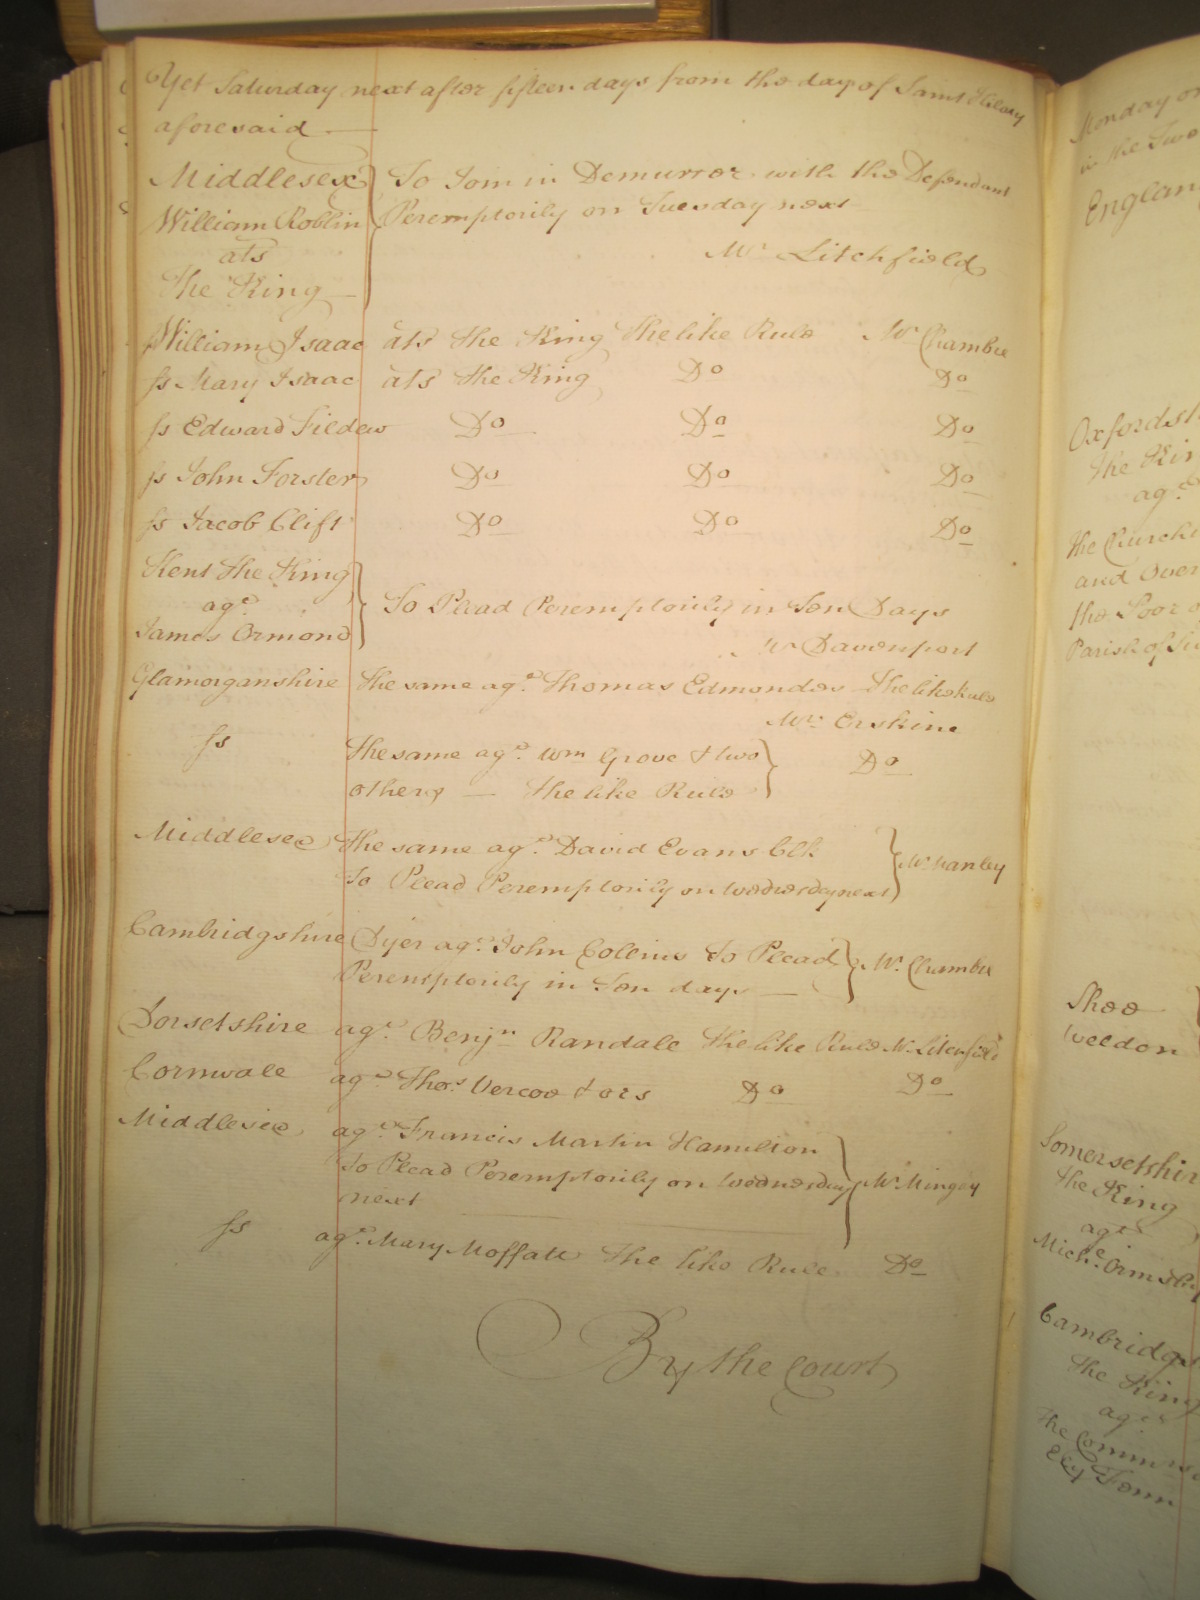 Yet Saturday next after fifteen days from the day of Saint Hilary
aforesaid
Middlesex } To Join in Demurrer with the Defendant
William Roblin Peremptorily on Tuesday next
ats Mr Litchfield
The King
William Isaac ats the King The like Rule Mr Chambre
ss Mary Isaac ats the King Do Do
ss Edward Fildew Do Do Do
ss John Forster Do Do Do
ss Jacob Clift Do Do Do
Kent The King
agt
James Ormond } To Plead Peremptorily in Ten Days
Mr Davenport
Glamorganshire The same agt Thomas Edmondes The like Rule
Mr Erskine
ss The same agt Wm Grove & two } Do
others — The like Rule
Middlesex The same agt David Evans Clk } Mr Manley
To Plead Peremptorily on Wednesday next
Cambridgshire Dyer agt John Collins To Plead } Mr Chambre
Peremptorily in Ten days —
Dorsetshire agt Benjn Randall The like Rule Mr Litchfield
Cornwall agt Thos Vercoe & ors Do Do
Middlesex agt Francis Martin Hamilton
To Plead Peremptorily on Wednesday } Mr Mingay
next
ss agt Mary Moffatt The like Rule Do
By the Court
Monday
in the
Oxfordsh
The Kin
agt
the Church
and Over
the Poor o
Parish of
Shee
Weldon
Somersetshir
The King
agt
Michl Ormsby
Cambridge
The King
agt
The Commis
Ely